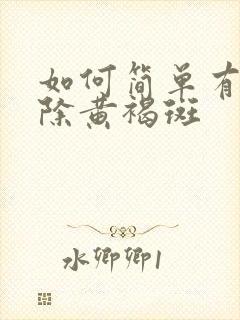 如何简单有
除黄褐斑
水卿卿1